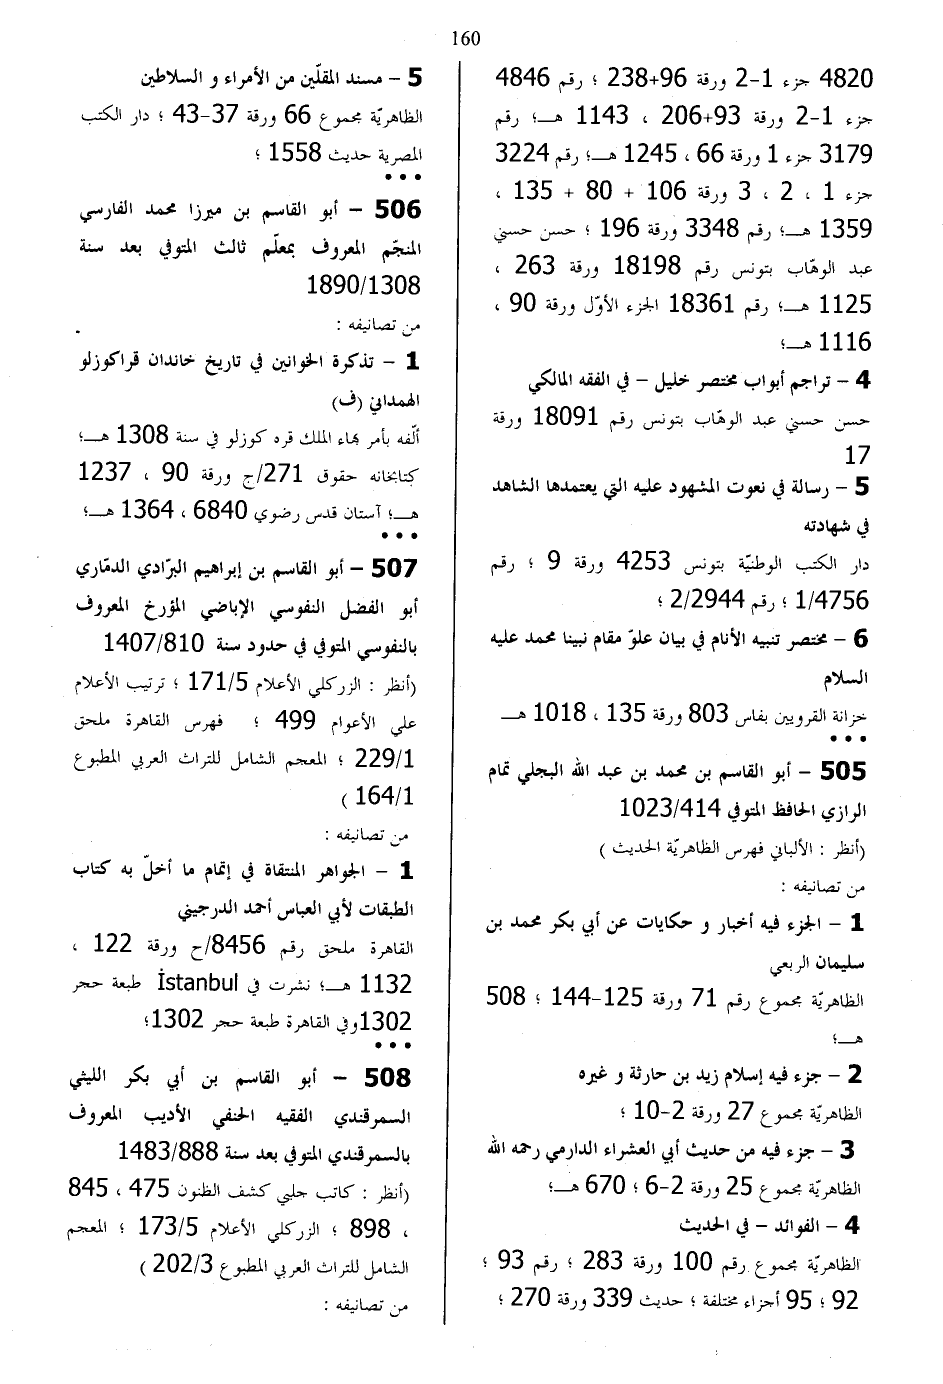 160
4820 جزء 1-2 ورقة 96+238 ؛ رقم 4846
جزء 1-2 ورقة 93+206 ، 1143 هـ؛ رقم
3179 جزء 1 ورقة 66 ، 1245 هـ؛ رقم 3224
جزء 1 ، 2 ، 3 ورقة 106 + 80 + 135 ،
1359 هـ؛ رقم 3348 ورقة 196 ؛ حسن حسني
عبد الوهّاب بتونس رقم 18198 ورقة 263 ،
1125 هـ؛ رقم 18361 الجزء الأوّل ورقة 90 ،
1116 هـ؛
4 - تراجم أبواب مختصر خليل - في الفقه المالكي
حسن حسني عبد الوهّاب بتونس رقم 18091 ورقة
17
5 - رسالة في نعوت المشهود عليه التي يعتمدها الشاهد
في شهادته
دار الكتب الوطنيّة بتونس 4253 ورقة 9 ؛ رقم
1/4756 ؛ رقم 2/2944 ؛
6 - مختصر تنبيه الأنام في بيان علوّ مقام نبينا محمد عليه
السلام
خزانة القرويين بفاس 803 ورقة 135 ، 1018 هـ
•••
505 - أبو القاسم بن محمد بن عبد الله البجلي تمام
الرازي الحافظ المتوفي 1023/414
(أنظر : الألباني فهرس الظاهريّة الحديث )
من تصانيفه :
1 - الجزء فيه أخبار و حكايات عن أبي بكر محمد بن
سليمان الربعي
الظاهريّة مجموع رقم 71 ورقة 125-144 ؛ 508
هـ؛
2 - جزء فيه إسلام زيد بن حارثة و غيره
الظاهريّة مجموع 27 ورقة 2-10 ؛
3 - جزء فيه من حديث أبي العشراء الدارمي رحمه الله
الظاهريّة مجموع 25 ورقة 2-6 ؛ 670 هـ؛
4 - الفوائد - في الحديث
الظاهريّة مجموع رقم 100 ورقة 283 ؛ رقم 93 ؛
92 ؛ 95 أجزاء مختلفة ؛ حديث 339 ورقة 270 ؛
5 - مسند المقلّين من الأمراء و السلاطين
الظاهريّة مجموع 66 ورقة 37-43 ؛ دار الكتب
المصرية حديث 1558 ؛
•••
506 - أبو القاسم بن ميرزا محمد الفارسي
المنجّم المعروف بمعلّم ثالث المتوفي بعد سنة
1890/1308
من تصانيفه :
1 - تذكرة الخوانين في تاريخ خاندان قراكوزلو
الهمداني (ف)
ألّفه بأمر بهاء الملك قره كوزلو في سنة 1308 هـ؛
كتابخانه حقوق 271/ج ورقة 90 ، 1237
هـ؛ آستان قدس رضوي 6840 ، 1364 هـ؛
•••
507 - أبو القاسم بن إبراهيم البرّادي الدمّاري
أبو الفضل النفوسي الإباضي المؤرخ المعروف
بالنفوسي المتوفي في حدود سنة 1407/810
(أنظر : الزركلي الأعلام 171/5 ؛ ترتيب الأعلام
علي الأعوام 499 ؛ فهرس القاهرة ملحق
229/1 ؛ المعجم الشامل للتراث العربي المطبوع
164/1 )
من تصانيفه :
1 - الجواهر المنتقاة في إتمام ما أخلّ به كتاب
الطبقات لأبي العباس أحمد الدرجيني
القاهرة ملحق رقم 8456/ح ورقة 122 ،
1132 هـ؛ نشرت في İstanbul طبعة حجر
1302وفي القاهرة طبعة حجر 1302؛
•••
508 - أبو القاسم بن أبي بكر الليثي
السمرقندي الفقيه الحنفي الأديب المعروف
بالسمرقندي المتوفي بعد سنة 1483/888
(أنظر : كاتب جلبي كشف الظنون 475 ، 845
، 898 ؛ الزركلي الأعلام 173/5 ؛ المعجم
الشامل للتراث العربي المطبوع 202/3 )
من تصانيفه :